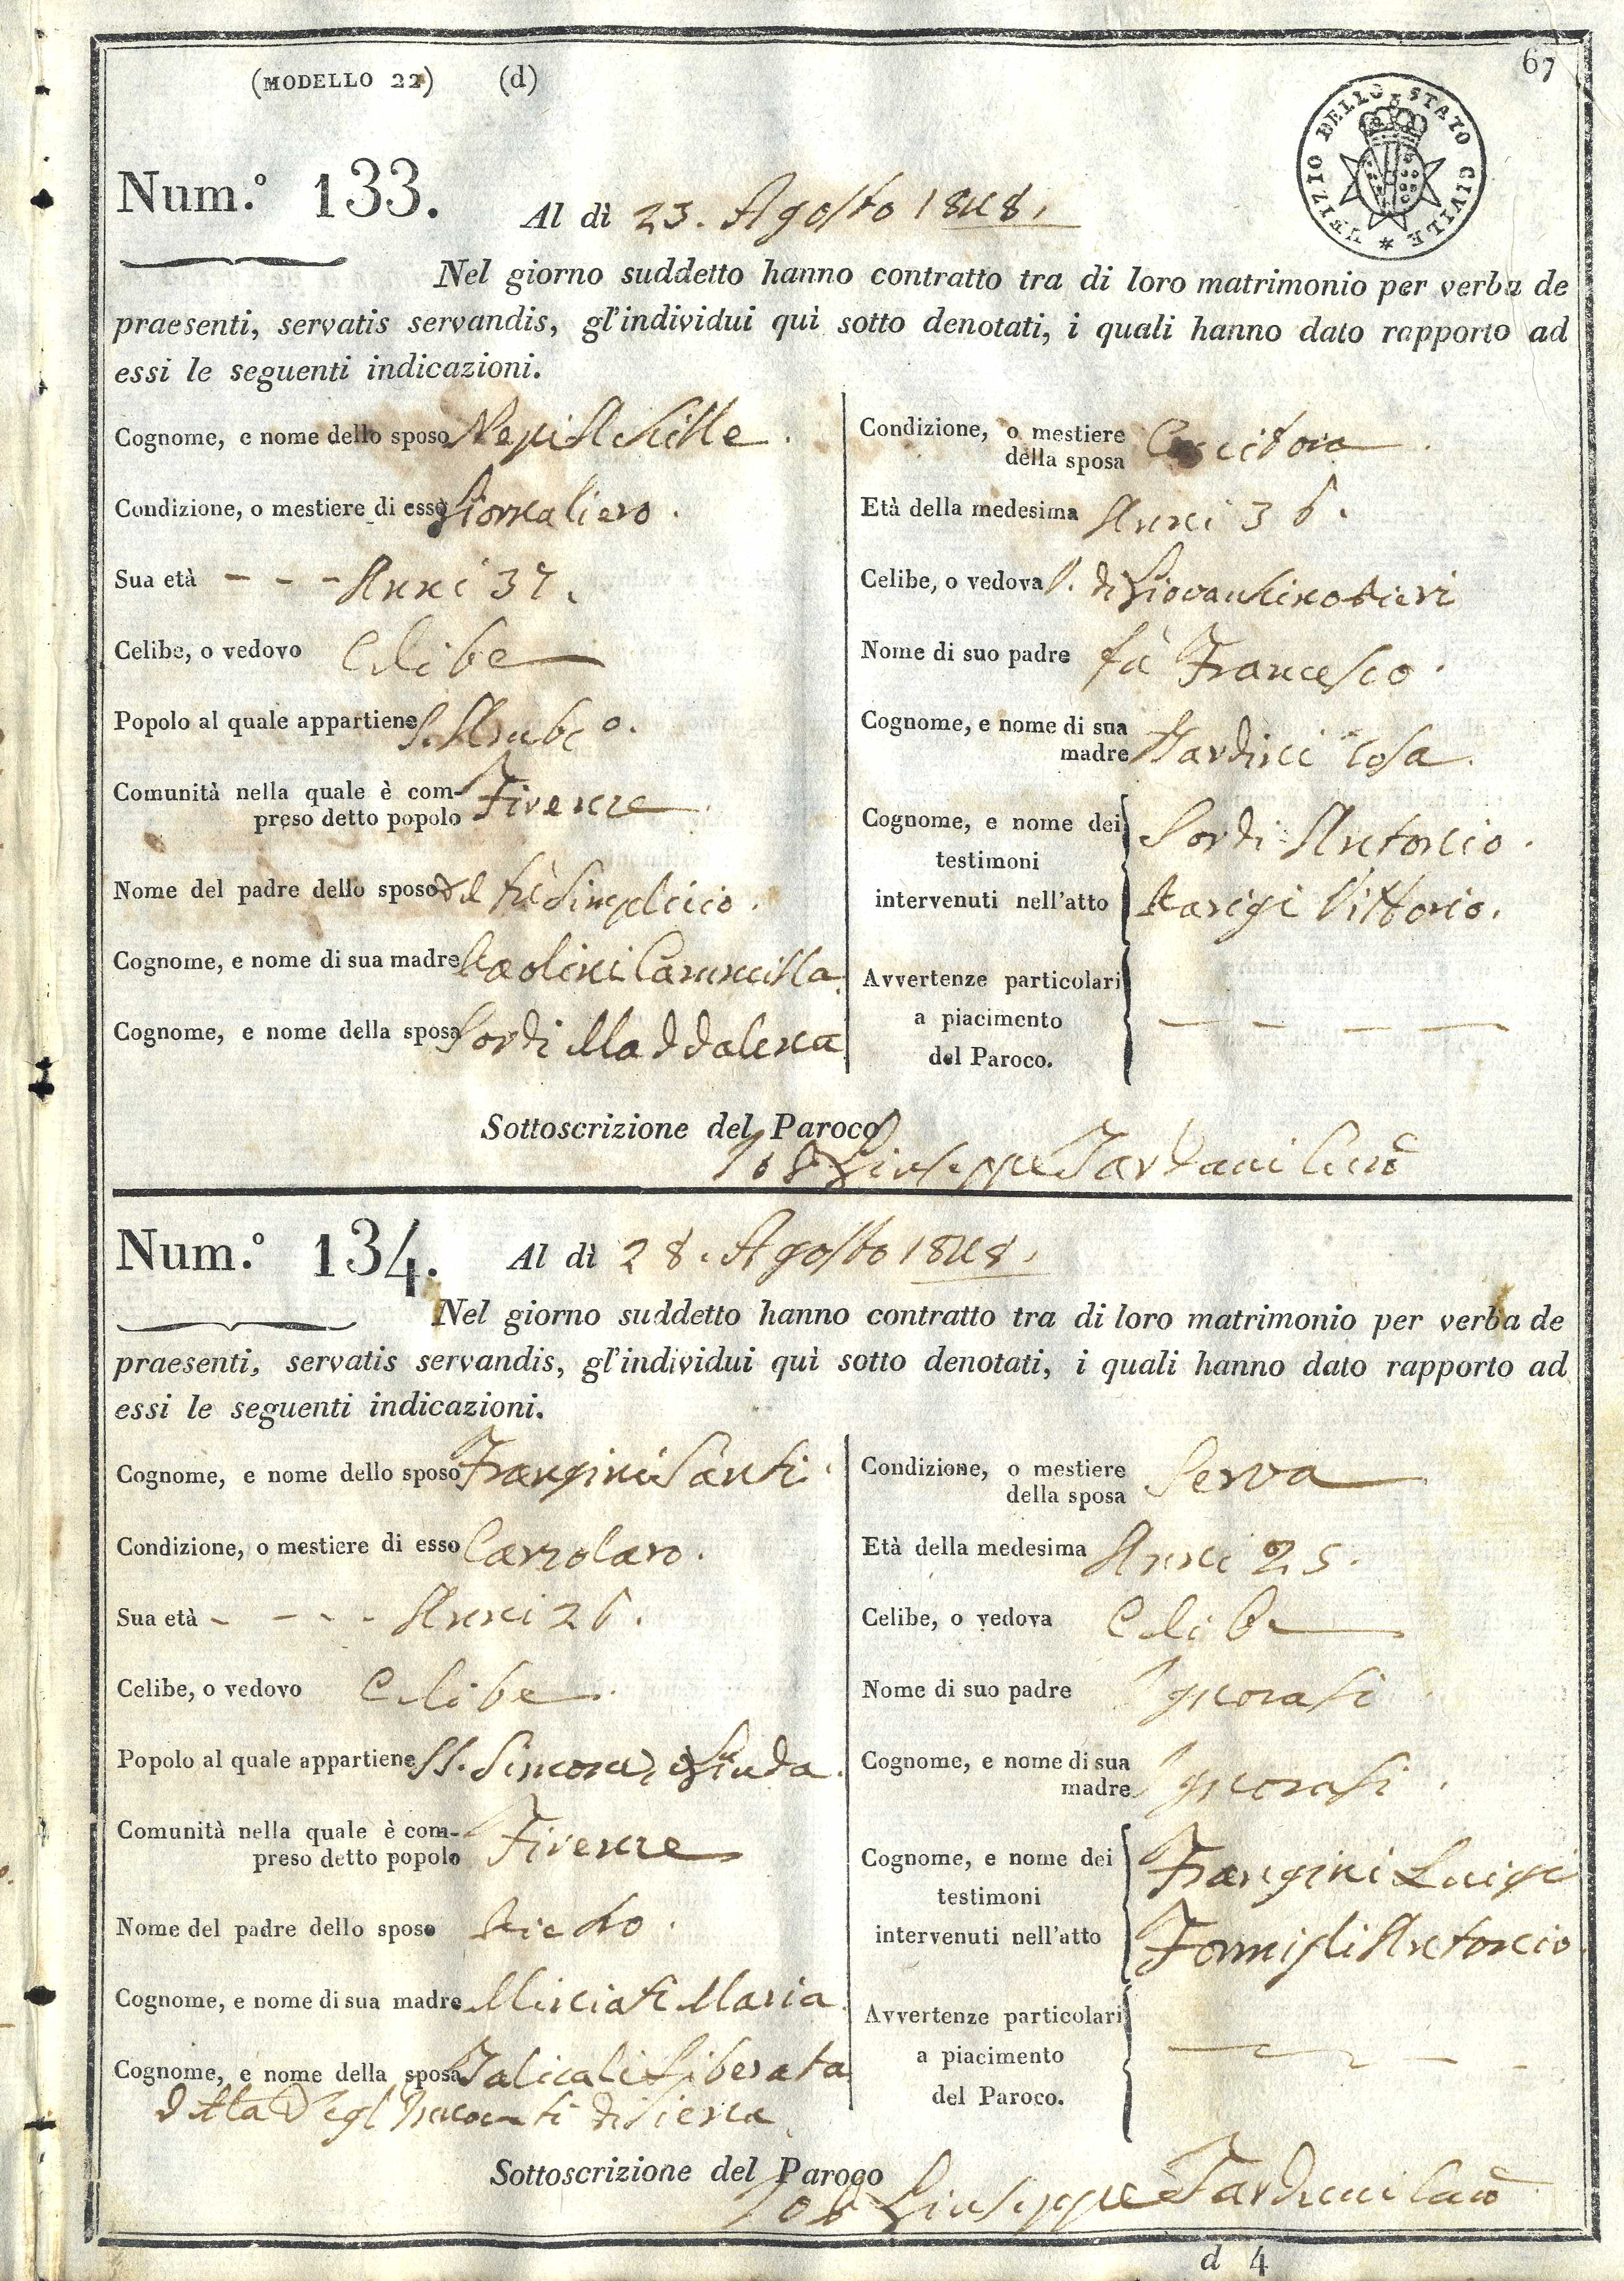 67
(MODELLO 22) (d)
UFIZIO DELLO STATO CIVILE *
Num.º 133. Al dì 23. Agosto 1848.
Nel giorno suddetto hanno contratto tra di loro matrimonio per verba de
praesenti, servatis servandis, gl'individui quì sotto denotati, i quali hanno dato rapporto ad
essi le seguenti indicazioni.
Cognome, e nome dello sposo Nepi Achille.
Condizione, o mestiere di esso Giornaliero.
Sua età - - - Anni 37.
Celibe, o vedovo Celibe
Popolo al quale appartiene S. Ambº.
Comunità nella quale è com-
preso detto popolo Firenze.
Nome del padre dello sposo del fù Simplicio.
Cognome, e nome di sua madre Paolini Cammilla.
Cognome, e nome della sposa Sordi Maddalena
Condizione, o mestiere
della sposa Cucitora.
Età della medesima Anni 36.
Celibe, o vedova V. di Giovacchino Pieri
Nome di suo padre fù Francesco.
Cognome, e nome di sua
madre Nardini Rosa.
Cognome, e nome dei
testimoni
intervenuti nell'atto
Sordi Antonio.
Parigi Vittorio.
Avvertenze particolari
a piacimento
del Paroco.
— — — —
Sottoscrizione del Paroco
Giuseppe Tarduci Curº
Num.º 134. Al dì 28. Agosto 1848.
Nel giorno suddetto hanno contratto tra di loro matrimonio per verba de
praesenti, servatis servandis, gl'individui quì sotto denotati, i quali hanno dato rapporto ad
essi le seguenti indicazioni.
Cognome, e nome dello sposo Frangini Santi.
Condizione, o mestiere di esso Calzolaro.
Sua età - - - - Anni 26.
Celibe, o vedovo Celibe.
Popolo al quale appartiene SS. Simone, e Giuda.
Comunità nella quale è com-
preso detto popolo Firenze
Nome del padre dello sposo Pietro.
Cognome, e nome di sua madre Minciati Maria.
Cognome, e nome della sposa Liberata
detta Degl'Innocenti di Siena
Condizione, o mestiere
della sposa Serva
Età della medesima Anni 25.
Celibe, o vedova Celibe
Nome di suo padre Ignorasi.
Cognome, e nome di sua
madre Ignorasi.
Cognome, e nome dei
testimoni
intervenuti nell'atto
Frangini Luigi
Formigli Antonio
Avvertenze particolari
a piacimento
del Paroco.
Sottoscrizione del Paroco
Giuseppe Tarduci Curº
d 4